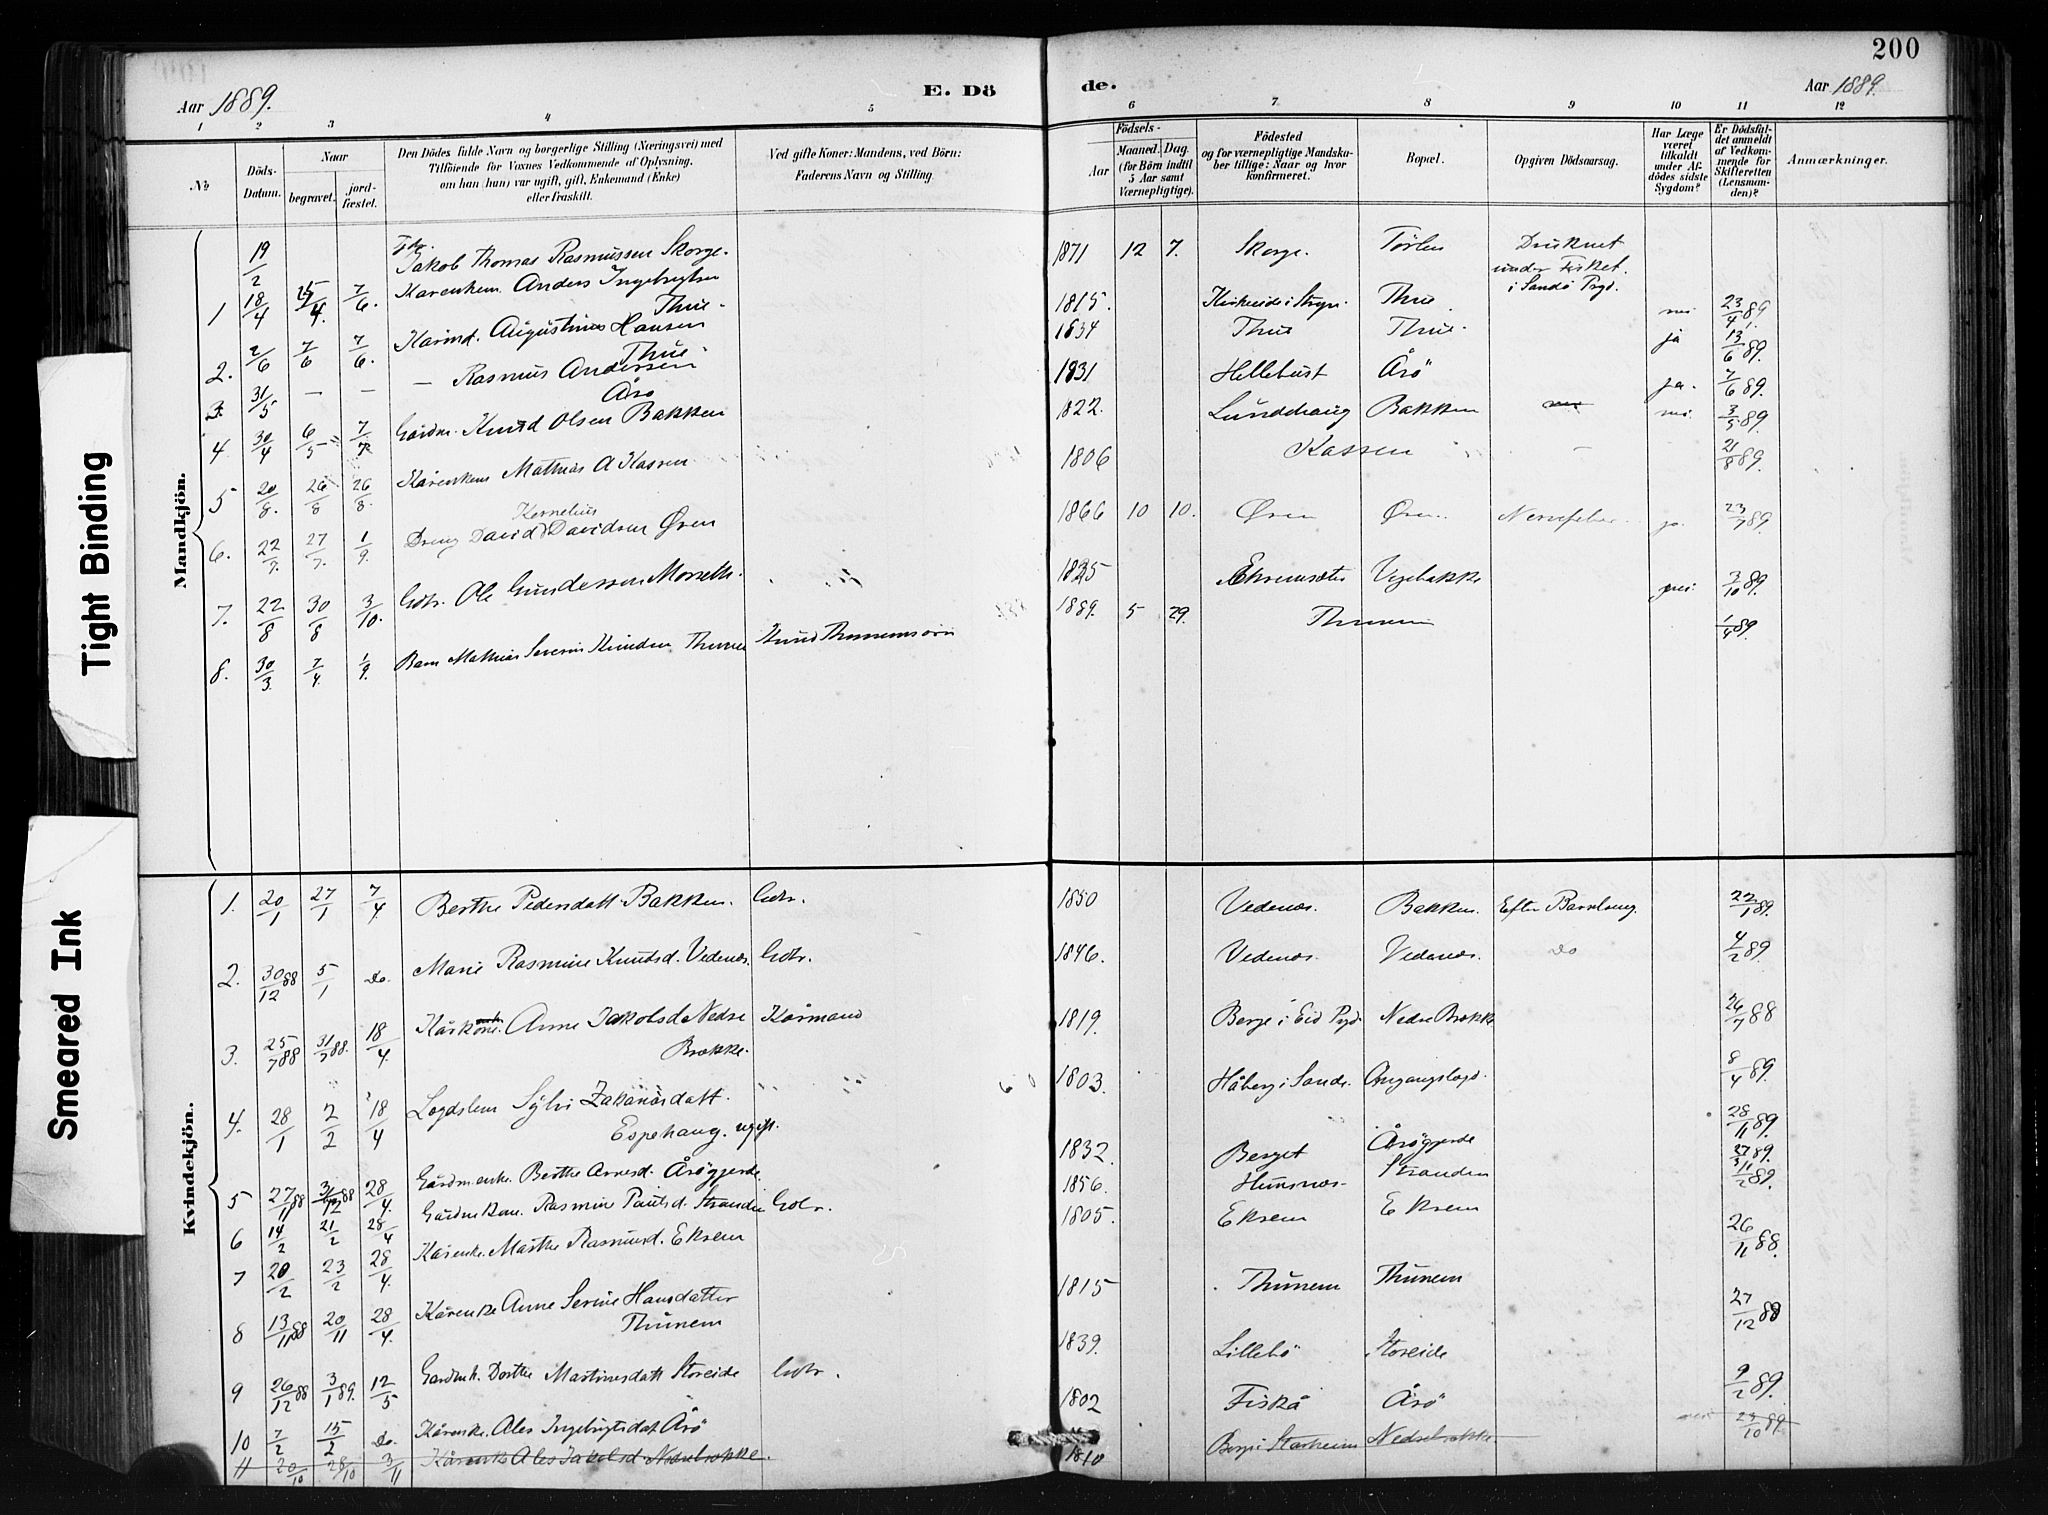 200
Aar 1889.
E. Dö
de.
Aar 1889.
1 2 3 4 5 6 7 8 9 10 11 12
No
Döds-Datum.
Naar
begravet.
jord-fæstet.
Den Dödes fulde Navn og borgerlige Stilling (Næringsvei) med
Tilföiende for Voxnes Vedkommende af Oplysning,
om han (hun) var ugift, gift, Enkemand (Enke)
eller fraskilt.
Ved gifte Koner: Mandens, ved Börn:
Faderens Navn og Stilling.
Födsels-
Aar
Maaned. Dag.
(for Börn indtil
5 Aar samt
Værnepligtige).
Födested
og for værnepligtige Mandska-
ber tillige: Naar og hvor
konfirmeret.
Bopæl.
Opgiven Dödsaarsag.
Har Læge
været
tilkaldt
under Af-
dödes sidste
Sygdom?
Er Dödsfal-
det anmeldt
af Vedkom-
mende for
Skifteretten
(Lensman-
den)?
Anmærkninger.
Tight Binding
Smeared Ink
Mandkjön.
19/2 Jakob Thomas Rasmussen Skorge. 1871 12 7. Skorge. Druknet
under Fisket.
i Sandö Pgd.
1 18/4 7/6. Anders Ingebrigtsen
Thue 1815. Thue 23/4 89
2. 2/6 7/6 7/6. Augustinus Hansen
Thue. 1834 Thue Thue. ja 13/6 89.
3. 31/5 — — — Rasmus Andersen
Årö 1831 Hellebust Årö ja. 7/6 89.
4 30/4 6/5 Gårdm. Knud Olsen Bakken 1822. Lunddhaug Bakken 3/5 89.
5 20/8. 26/8 26/8. Mathias A Kassen 1806 Kassen — 21/8 89
6. 22/7. 27/7. 1/9. Dreng David Kornelius Davidsen Øren 1866 10 10. Øren Øren. Nervefeber ja. 23/7 89.
7. 22/8 30/8 3/10. Gbr. Ole Gundersen Morseth. 1825 Vegebakke 3/10 89.
8. 30/3 7/4 1/9. Barn Mathias Severin Knudsen Thunem 1889. 5 29. Thunem 1/4 89.
Kvindekjön.
1. 20/1 27/1 7/4 Berthe Pedersdatt. Bakken. Gbr. 1850 Vedenæs. Bakken. Efter Barselseng. 22/1 89.
2. 30/12 88 5/1 Do. Marie Rasmine Knudsd. Vedenæs. Gbr. 1846. Vedenæs. Vedenæs. Do 4/2 89.
3. 25/7 88 31/7 88. 18/4. Anne Jakobsd. Nedre
Brække. Kårmand 1819. Berge i Eid Pgd. Nedre Brække 26/7 88
4. 28/1 2/2 18/4 Lægdslem Sylvi Zakariasdatt.
Espehaug. ugift. 1803. Håberg i Sande. Omgangslægd. 8/4 89.
5 27/11 88 31/12 88 28/4. Gårdmenke. Berthe Arnesd. Årögjerde. 1832. Berget Årögjerde 28/11 89.
6 14/2 21/2 28/4 Rasmine Paulsd. Stranden Gbr. 1856. Humnæs. Stranden
7 20/2 23/2 28/4. Kårenke. Marthe Rasmusd. Eksem 1805. Eksem Eksem
8 13/11 88 20/11 28/4. Kårenke Anne Serine Hansdatter
Thunem 1815 Thunem Thunem 26/11 88.
9 26/12 88 3/1 89. 12/5 Gardmk. Dorthe Martinusdatt Storeide Gbr. 1839. Lillebö Storeide 27/12 88
10 7/2 15/2 Do. Kårenke. Ales Ingebrigtsdat. Årö 1802 Fiskå Årö 9/2 89.
11 20/10 28/10 3/11 Kårenk. Ales Jakobsd. Nedrebrekke. 1810 Nedrebrække. 23/10 89.